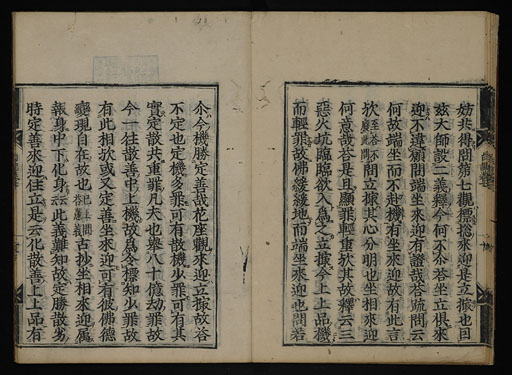 妨非得問第七觀標挍來迎是立據也因
玆大師設二義釋今何不尒荅坐立倶來
迎不違難問端坐來迎有證哉荅疏問云
何故端坐而不赴機有坐來迎故有此言
欤問立據其心分明也坐相來迎
何意哉荅是且顯罪輕重欤其故釋云三
惡火坑臨臨欲入爲之立據今上上品機
而輕罪故佛緩緩地而端坐來迎也問若
尒今機勝定善哉花座觀來迎立據故荅
不定也定機多罪可有散機少罪可有其
實定散共重罪凡夫也擧八十億劫罪故
今一往散善中上機故爲令標知少罪故
有此相欤或又定善坐來迎可有彼佛德
變現自在故也古抄坐相來迎屬
報身中下化身云此義難知故定勝散劣
時定善來迎住立是云化散善上上品有